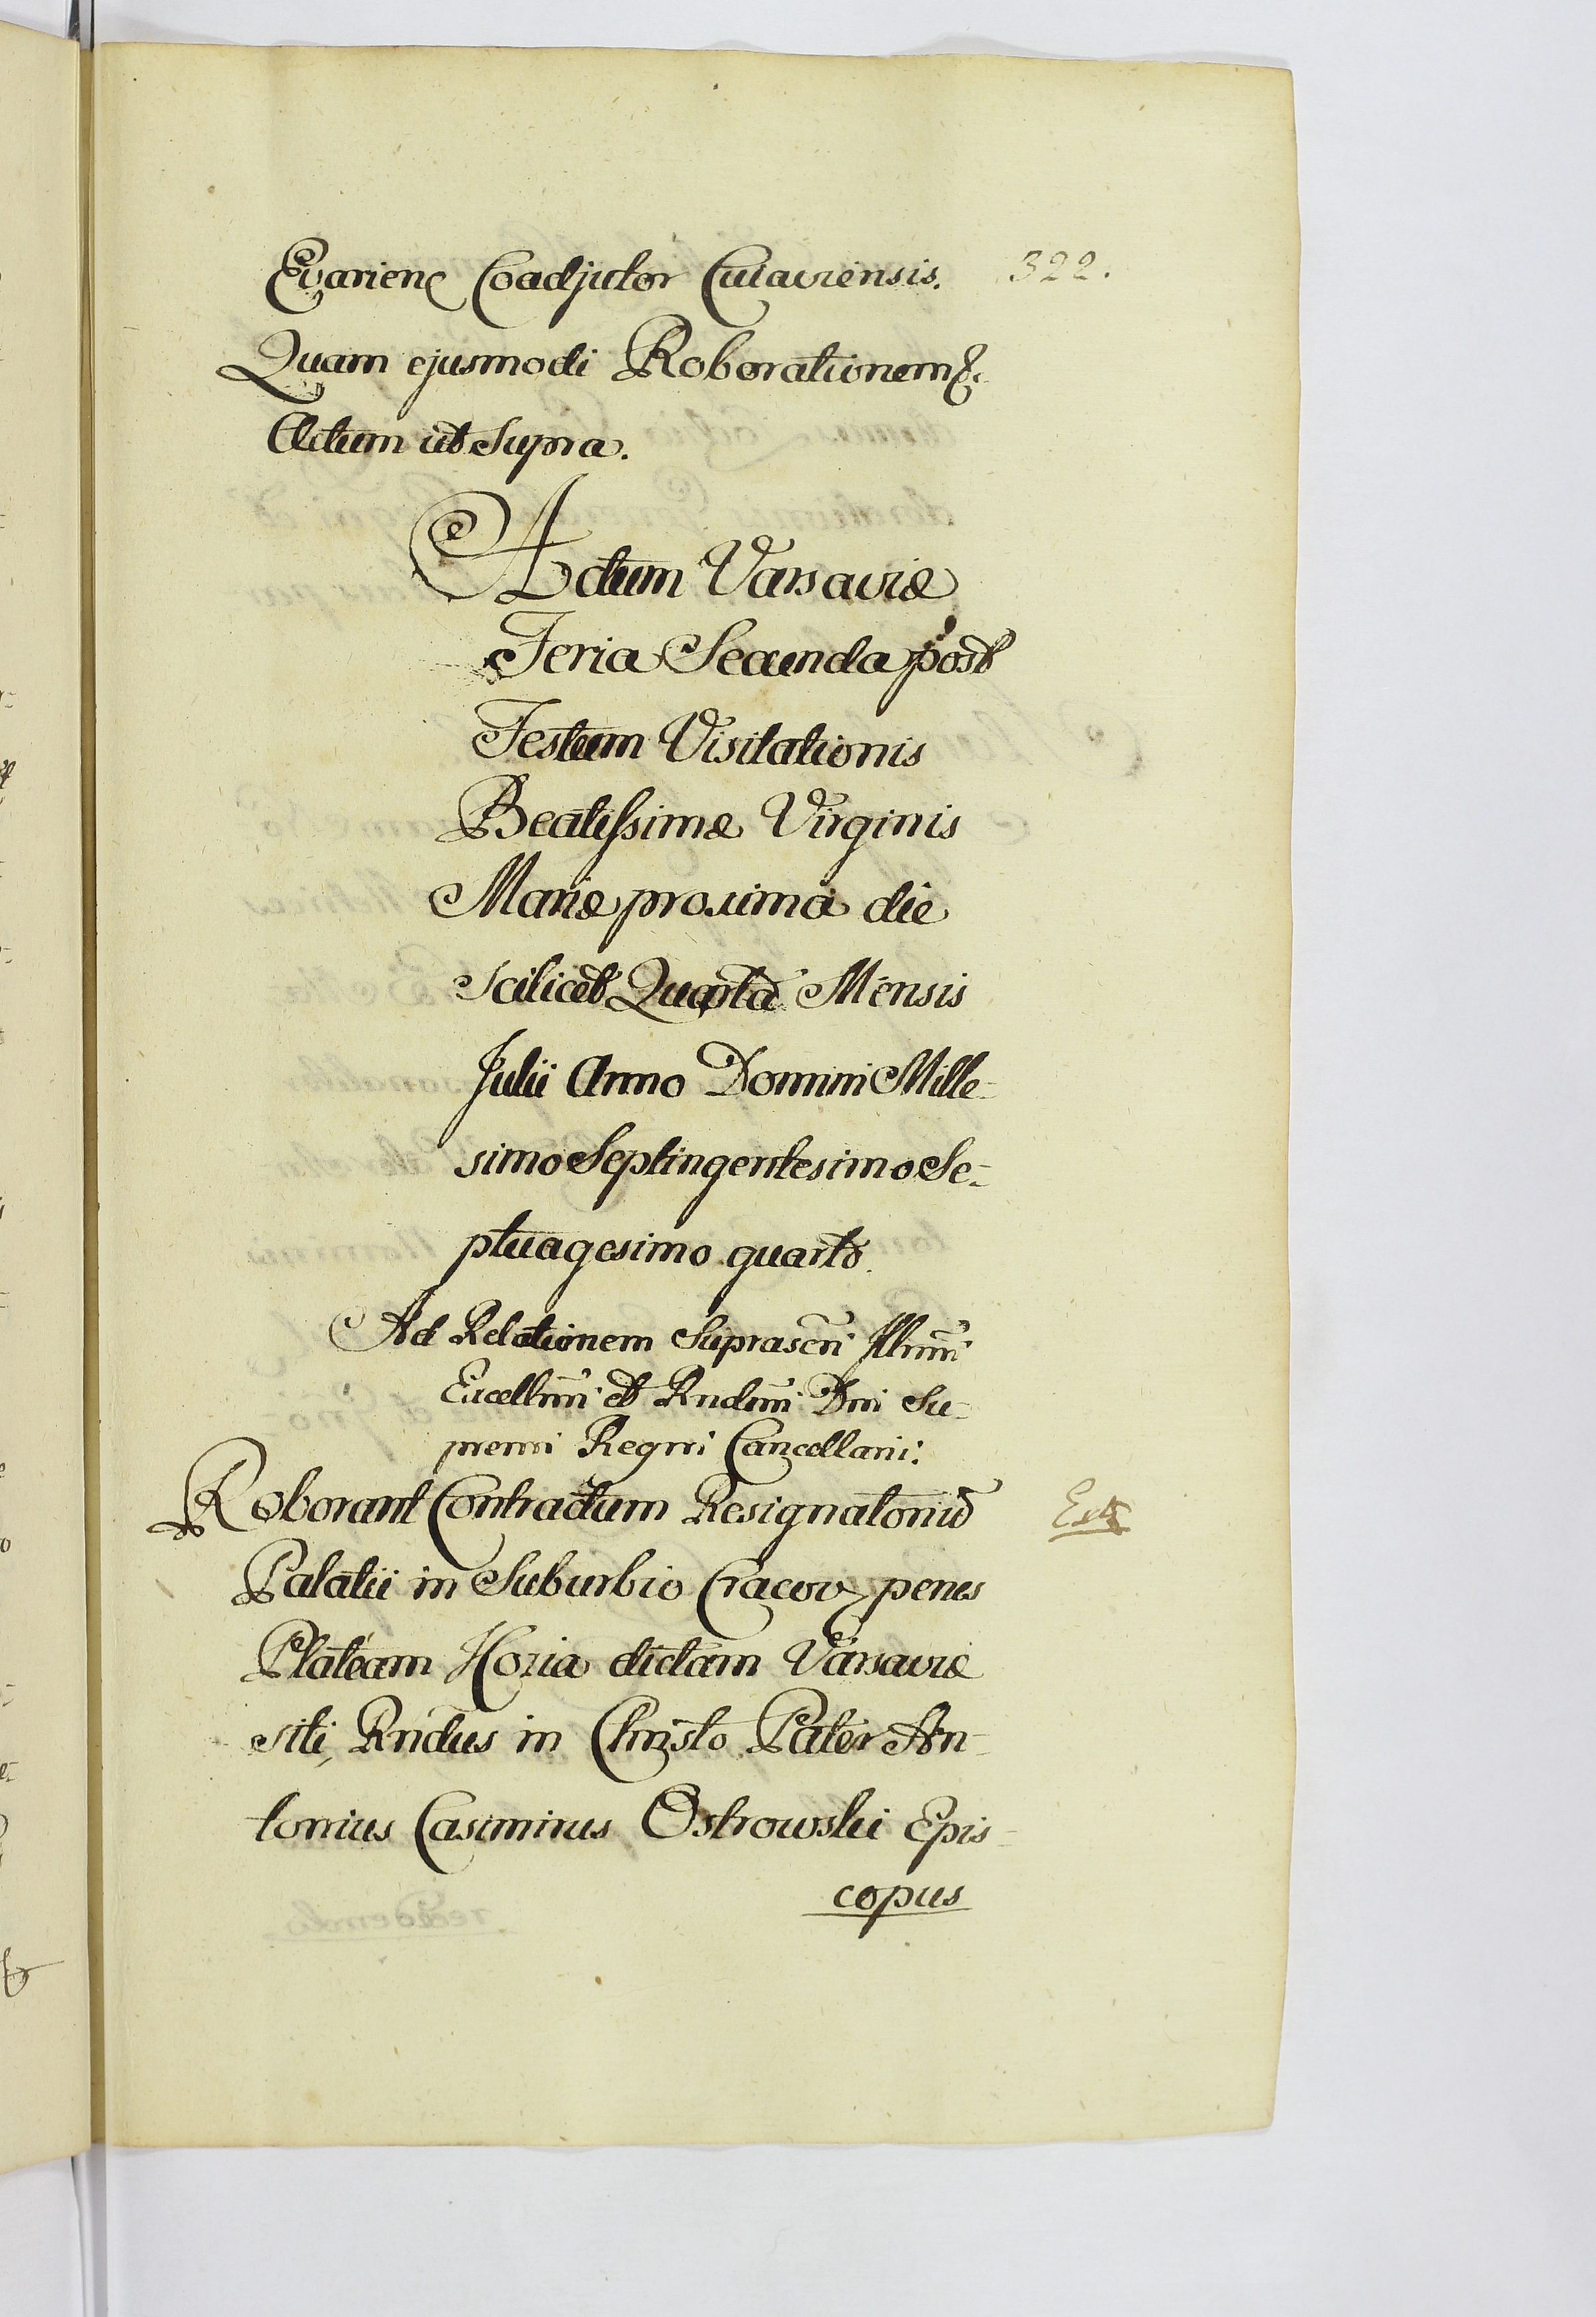 Evarienẽ Coadjutor Cuiaviensis. 322.
Quam ejusmodi Roborationem &.
Actum ut Supra.
Actum Varsaviæ
Feria Secunda post
Festum Visitationis
Beatissimæ Virginis
Mariæ proxima die
scilicet Quarta Mensis
Julii Anno Domini Mille-
simo Septingentesimo Se-
ptuagesimo quarto.
Ad Relationem Suprascri Illmi
Excellmi et Rndmi Dni Su-
premi Regni Cancellarii.
Roborant Contractum Resignatoriũ
Palatii in Suburbio Cracov penes
Plateam Hozia dictam Varsaviæ
siti, Rndus in Christo Pater An-
tonius Casimirus Ostrowski Epis-
copus